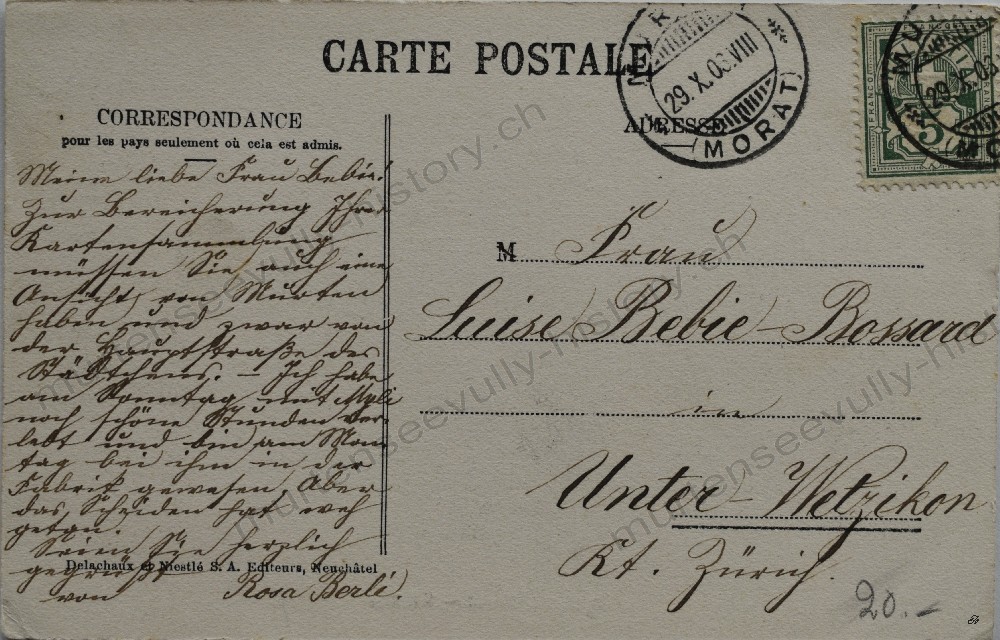 CARTE POSTALE
CORRESPONDANCE
pour les pays seulement où cela est admis.
ADRESSE
MURTEN
29.X.03.VIII
(MORAT)
29.X.03
FRANCO
5
Meine liebe Frau Bebié!
Zur Bereicherung Ihrer
Kartensammlung
müssen Sie auch eine
Ansicht von Murten
haben und zwar von
der Hauptstraße des
Städtchens. – Ich habe
am Sonntag mit
noch schöne Stunden ver-
lebt und bin am Mon
tag bei ihm in der
Fabrik gewesen. Aber
das Scheiden hat weh
getan.
Seien Sie herzlich
gegrüßt
von Rosa Berli.
Delachaux et Niestlé S. A. Editeurs, Neuchâtel
M Frau
Luise Bebie-Bossard
in
Unter-Wetzikon
Kt. Zürich.
20.–
murtenseevully-history.ch